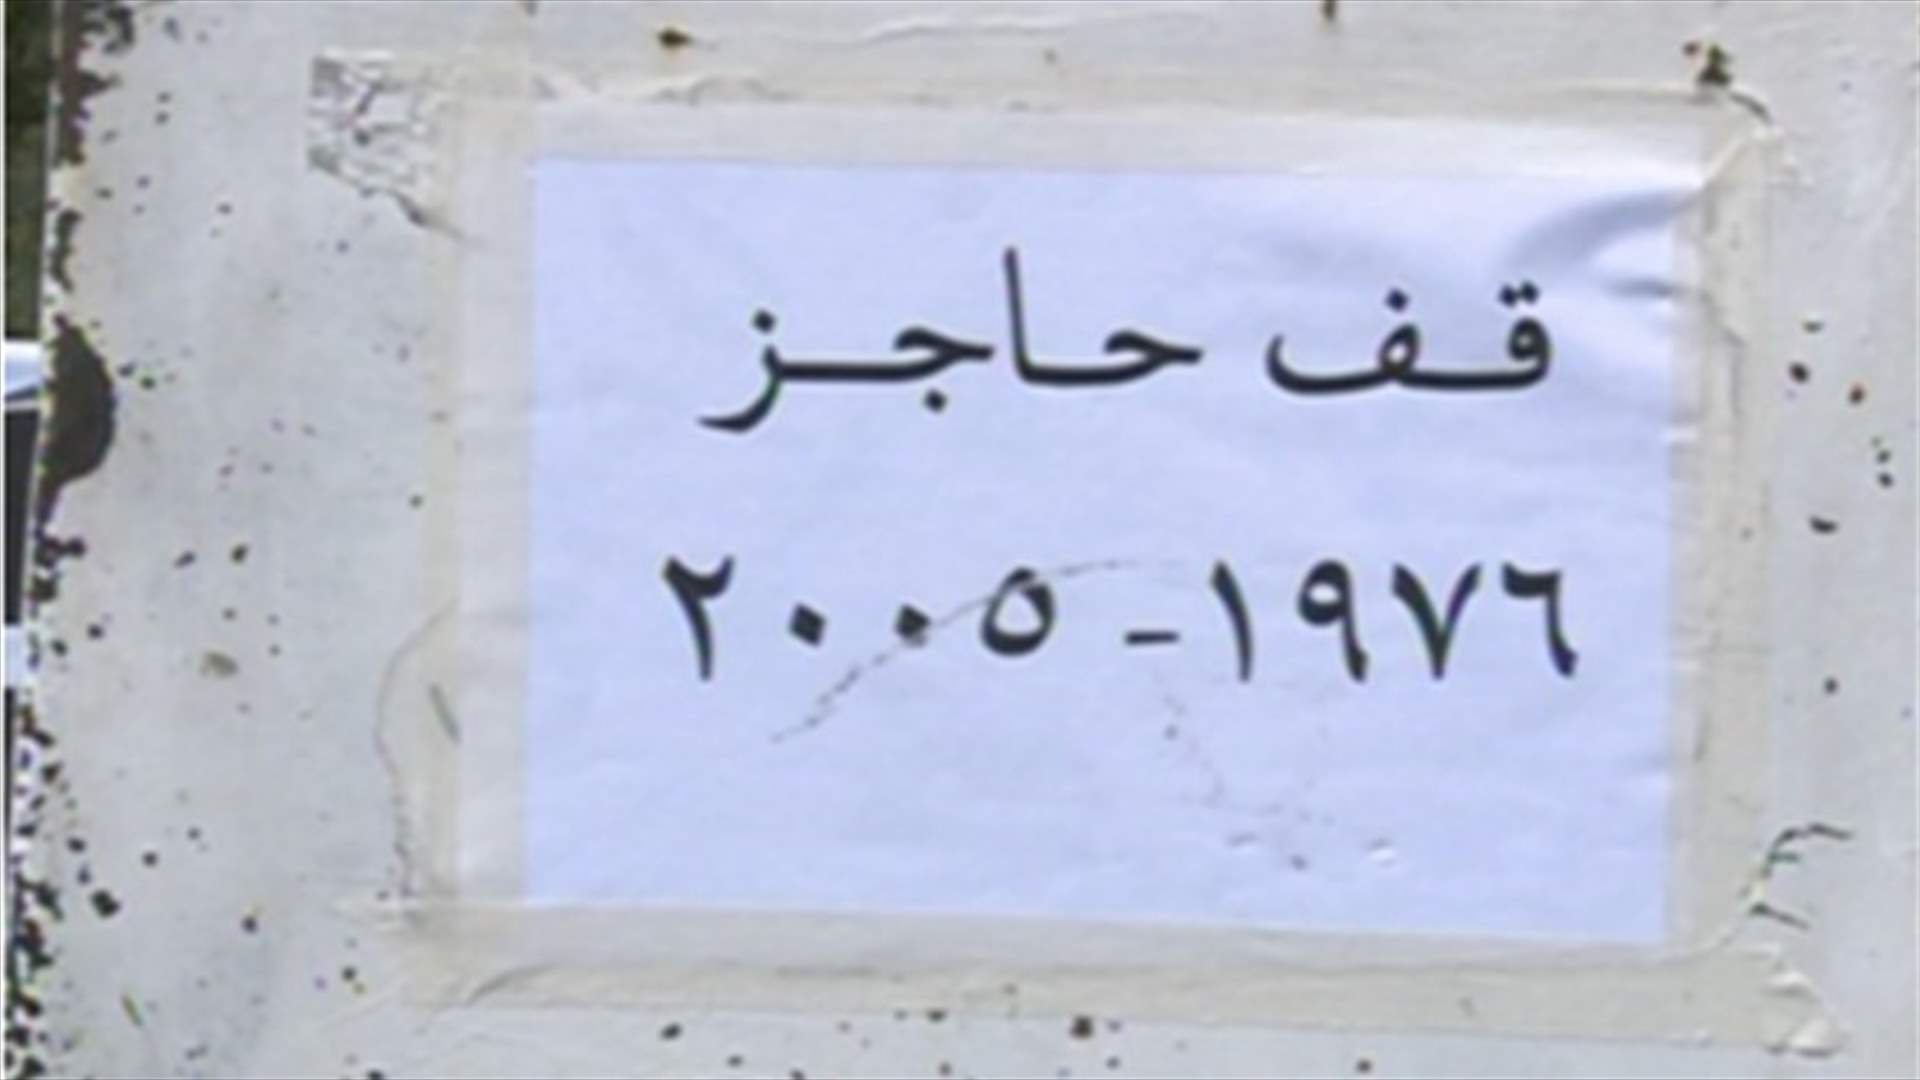 قف حاجز
١٩٧٦ - ٢٠٠٥